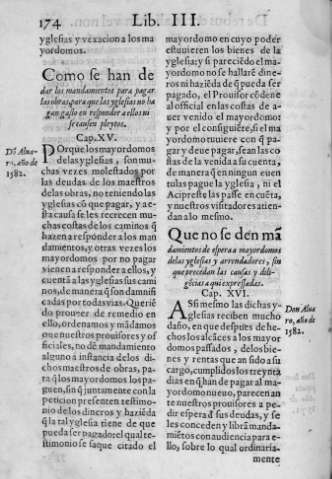 174 Lib. III.
yglesias y vexacion a los ma
yordomos.
Como se han de
dar los mandamientos para pagar
las obras, para que las yglesias no ha
gan gasto en responder a ellos ni
se causen pleytos.
Cap. XV.
Dō Alua-
ro, año de
1582.
POrque los mayordomos
de las yglesias, son mu-
chas vezes molestados por
las deudas de los maestros
de las obras, no teniendo las
yglesias cō que pagar, y a es-
ta causa se les recrecen mu-
chas costas de los caminos q̄
hazen a responder a los man
damientos, y otras vezes los
mayordomos por no pagar
vienen a responder a ellos, y
cuentā a las yglesias sus cami
nos, de manera q̄ son damnifi
cadas por todas vias. Querié
do proueer de remedio en
ello, ordenamos y mādamos
que nuestros prouisores y of-
ficiales, no dē mandamiento
alguno à instancia de los di-
chos maestros de obras, pa-
ra q̄ los mayordomos los pa-
guen, sin q̄ juntamente con la
peticion presenten testimo-
nio de los dineros y haziēda
q̄ la tal yglesia tiene de que
pueda ser pagado: el qual te-
stimonio se saque citado el
mayordomo en cuyo poder
estuuieren los bienes de la
yglesia; y si pareciēdo el ma-
yordomo no se hallarē dine-
ros ni haziēda de q̄ pueda ser
pagado, el Prouisor cōdene
al official en las costas de a-
uer venido el mayordomo:
y por el consiguiēte, si el ma
yordomo tuuiere con q̄ pa-
gar y deue pagar, sean las co
stas de la venida a su cuenta,
de manera q̄ en ningun euen
tu las pague la yglesia, ni el
Acipreste las passe en cuēta,
y nuestros visitadores atien-
dan a lo mesmo.
Que no se den mā
damientos de espera a mayordomos
de las yglesias y arrendadores, sin
que precedan las causas y dili-
gēcias aqui expressadas.
Cap. XVI.
Don Alua
ro, año de
1582.
ASsi mesmo las dichas y-
glesias reciben mucho
daño, en que despues de he-
chos los alcāces a los mayor
domos passados, de los bie-
nes y rentas que an sido a su
cargo, cumplidos los treynta
dias en q̄ han de pagar al ma-
yordomo nueuo, parecen an
te nuestros prouisores a pe-
dir espera d̄ sus deudas, y se
les conceden y librā manda-
miētos con audiencia para e-
llo, sobre lo qual ordinaria-
mente